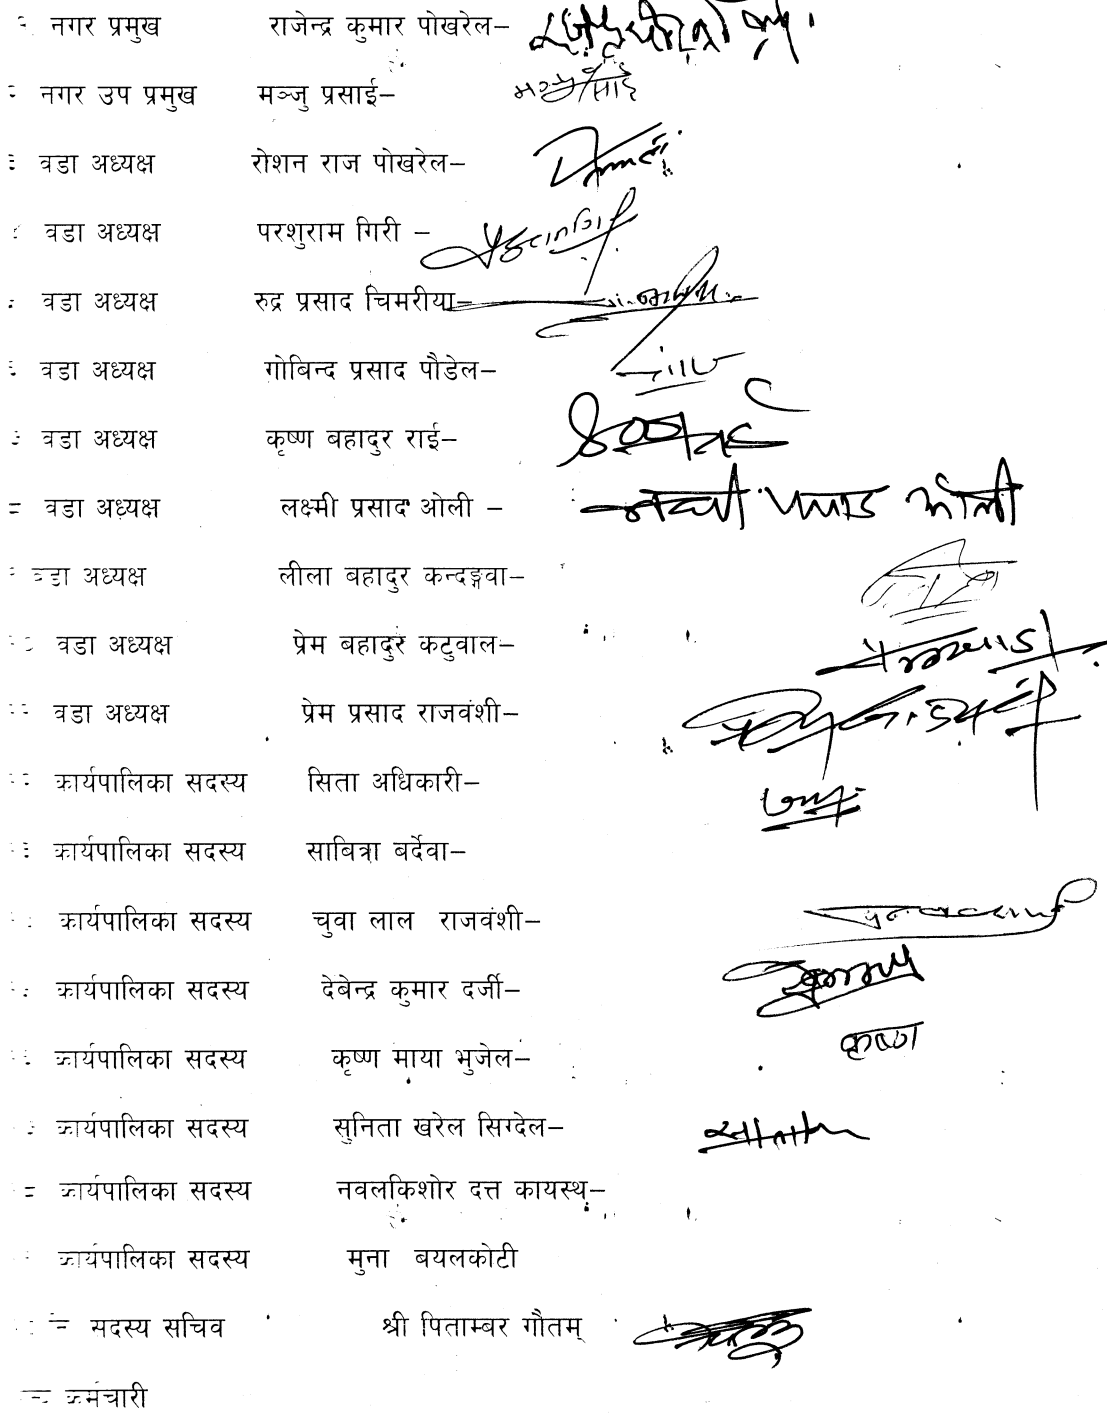 नगर प्रमुख राजेन्द्र कुमार पोखरेल–
नगर उप प्रमुख मञ्जु प्रसाई–
वडा अध्यक्ष रोशन राज पोखरेल–
वडा अध्यक्ष परशुराम गिरी –
वडा अध्यक्ष रुद्र प्रसाद चिमरीया–
वडा अध्यक्ष गोबिन्द प्रसाद पौडेल–
वडा अध्यक्ष कृष्ण बहादुर राई–
वडा अध्यक्ष लक्ष्मी प्रसाद ओली –
वडा अध्यक्ष लीला बहादुर कन्दङ्गवा–
वडा अध्यक्ष प्रेम बहादुर कटुवाल–
वडा अध्यक्ष प्रेम प्रसाद राजवंशी–
कार्यपालिका सदस्य सिता अधिकारी–
कार्यपालिका सदस्य साबित्रा बर्देवा–
कार्यपालिका सदस्य चुवा लाल राजवंशी–
कार्यपालिका सदस्य देबेन्द्र कुमार दर्जी–
कार्यपालिका सदस्य कृष्ण माया भुजेल– कृष्ण
कार्यपालिका सदस्य सुनिता खरेल सिग्देल–
कार्यपालिका सदस्य नवलकिशोर दत्त कायस्थ–
कार्यपालिका सदस्य मुना बयलकोटी
सदस्य सचिव श्री पिताम्बर गौतम्
कर्मचारी